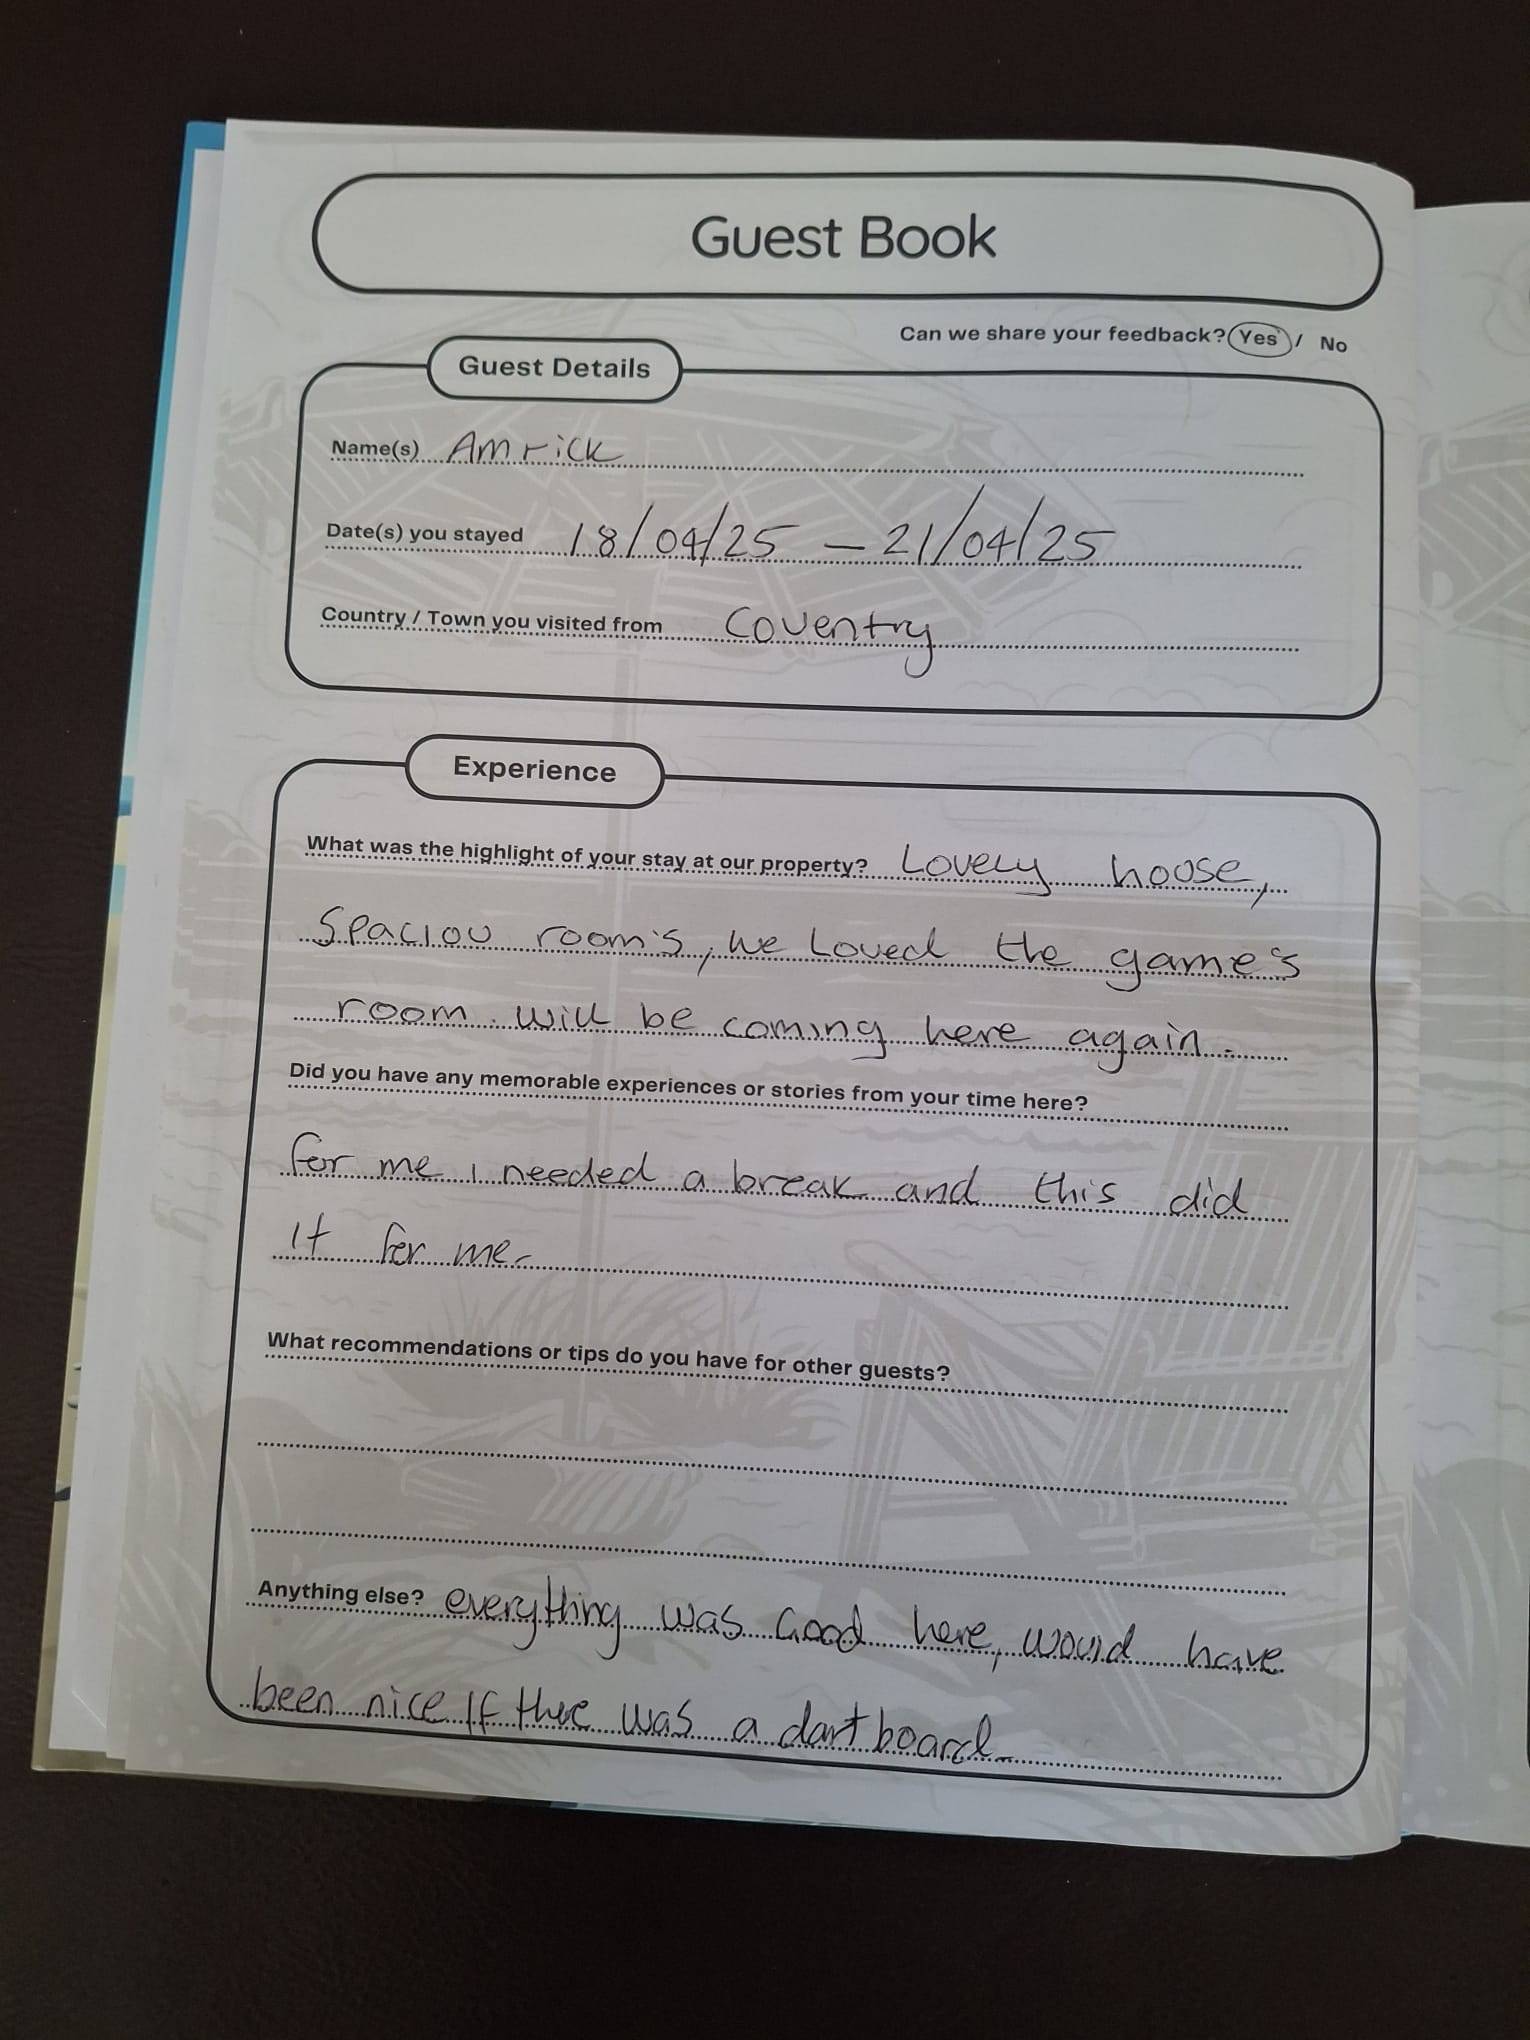 Guest Book
Can we share your feedback? Yes / No
Guest Details
Name(s) Amrick
Date(s) you stayed 18/04/25 - 21/04/25
Country / Town you visited from Coventry
Experience
What was the highlight of your stay at our property? Lovely hoose,
Spaciou room's, we loved the game's
room. will be coming here again.
Did you have any memorable experiences or stories from your time here?
for me i needed a break and this did
it for me.
What recommendations or tips do you have for other guests?
Anything else? everything was Good here, would have
been nice if there was a dartboard.